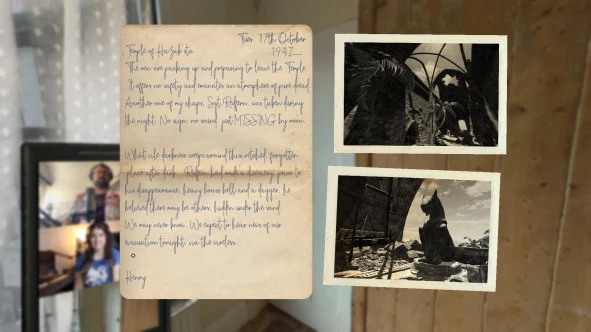 Tues. 17th October
1942
Temple of Hazak ete
The men are packing up and preparing to leave the Temple.
It offers no safety and emanates an atmosphere of pure dread.
Another one of my chaps, Sgt. Redfern, was taken during
the night. No sign, no sound, just MISSING by morn.
What vile darkness creeps around this wretched, forgotten
place after dark. Redfern had made a discovery prior to
his disappearance, heavy brass bell and a dagger, he
believed there may be others, hidden under the sand.
We may never know. We expect to hear news of our
evacuation tonight, via the wireless.
Henry